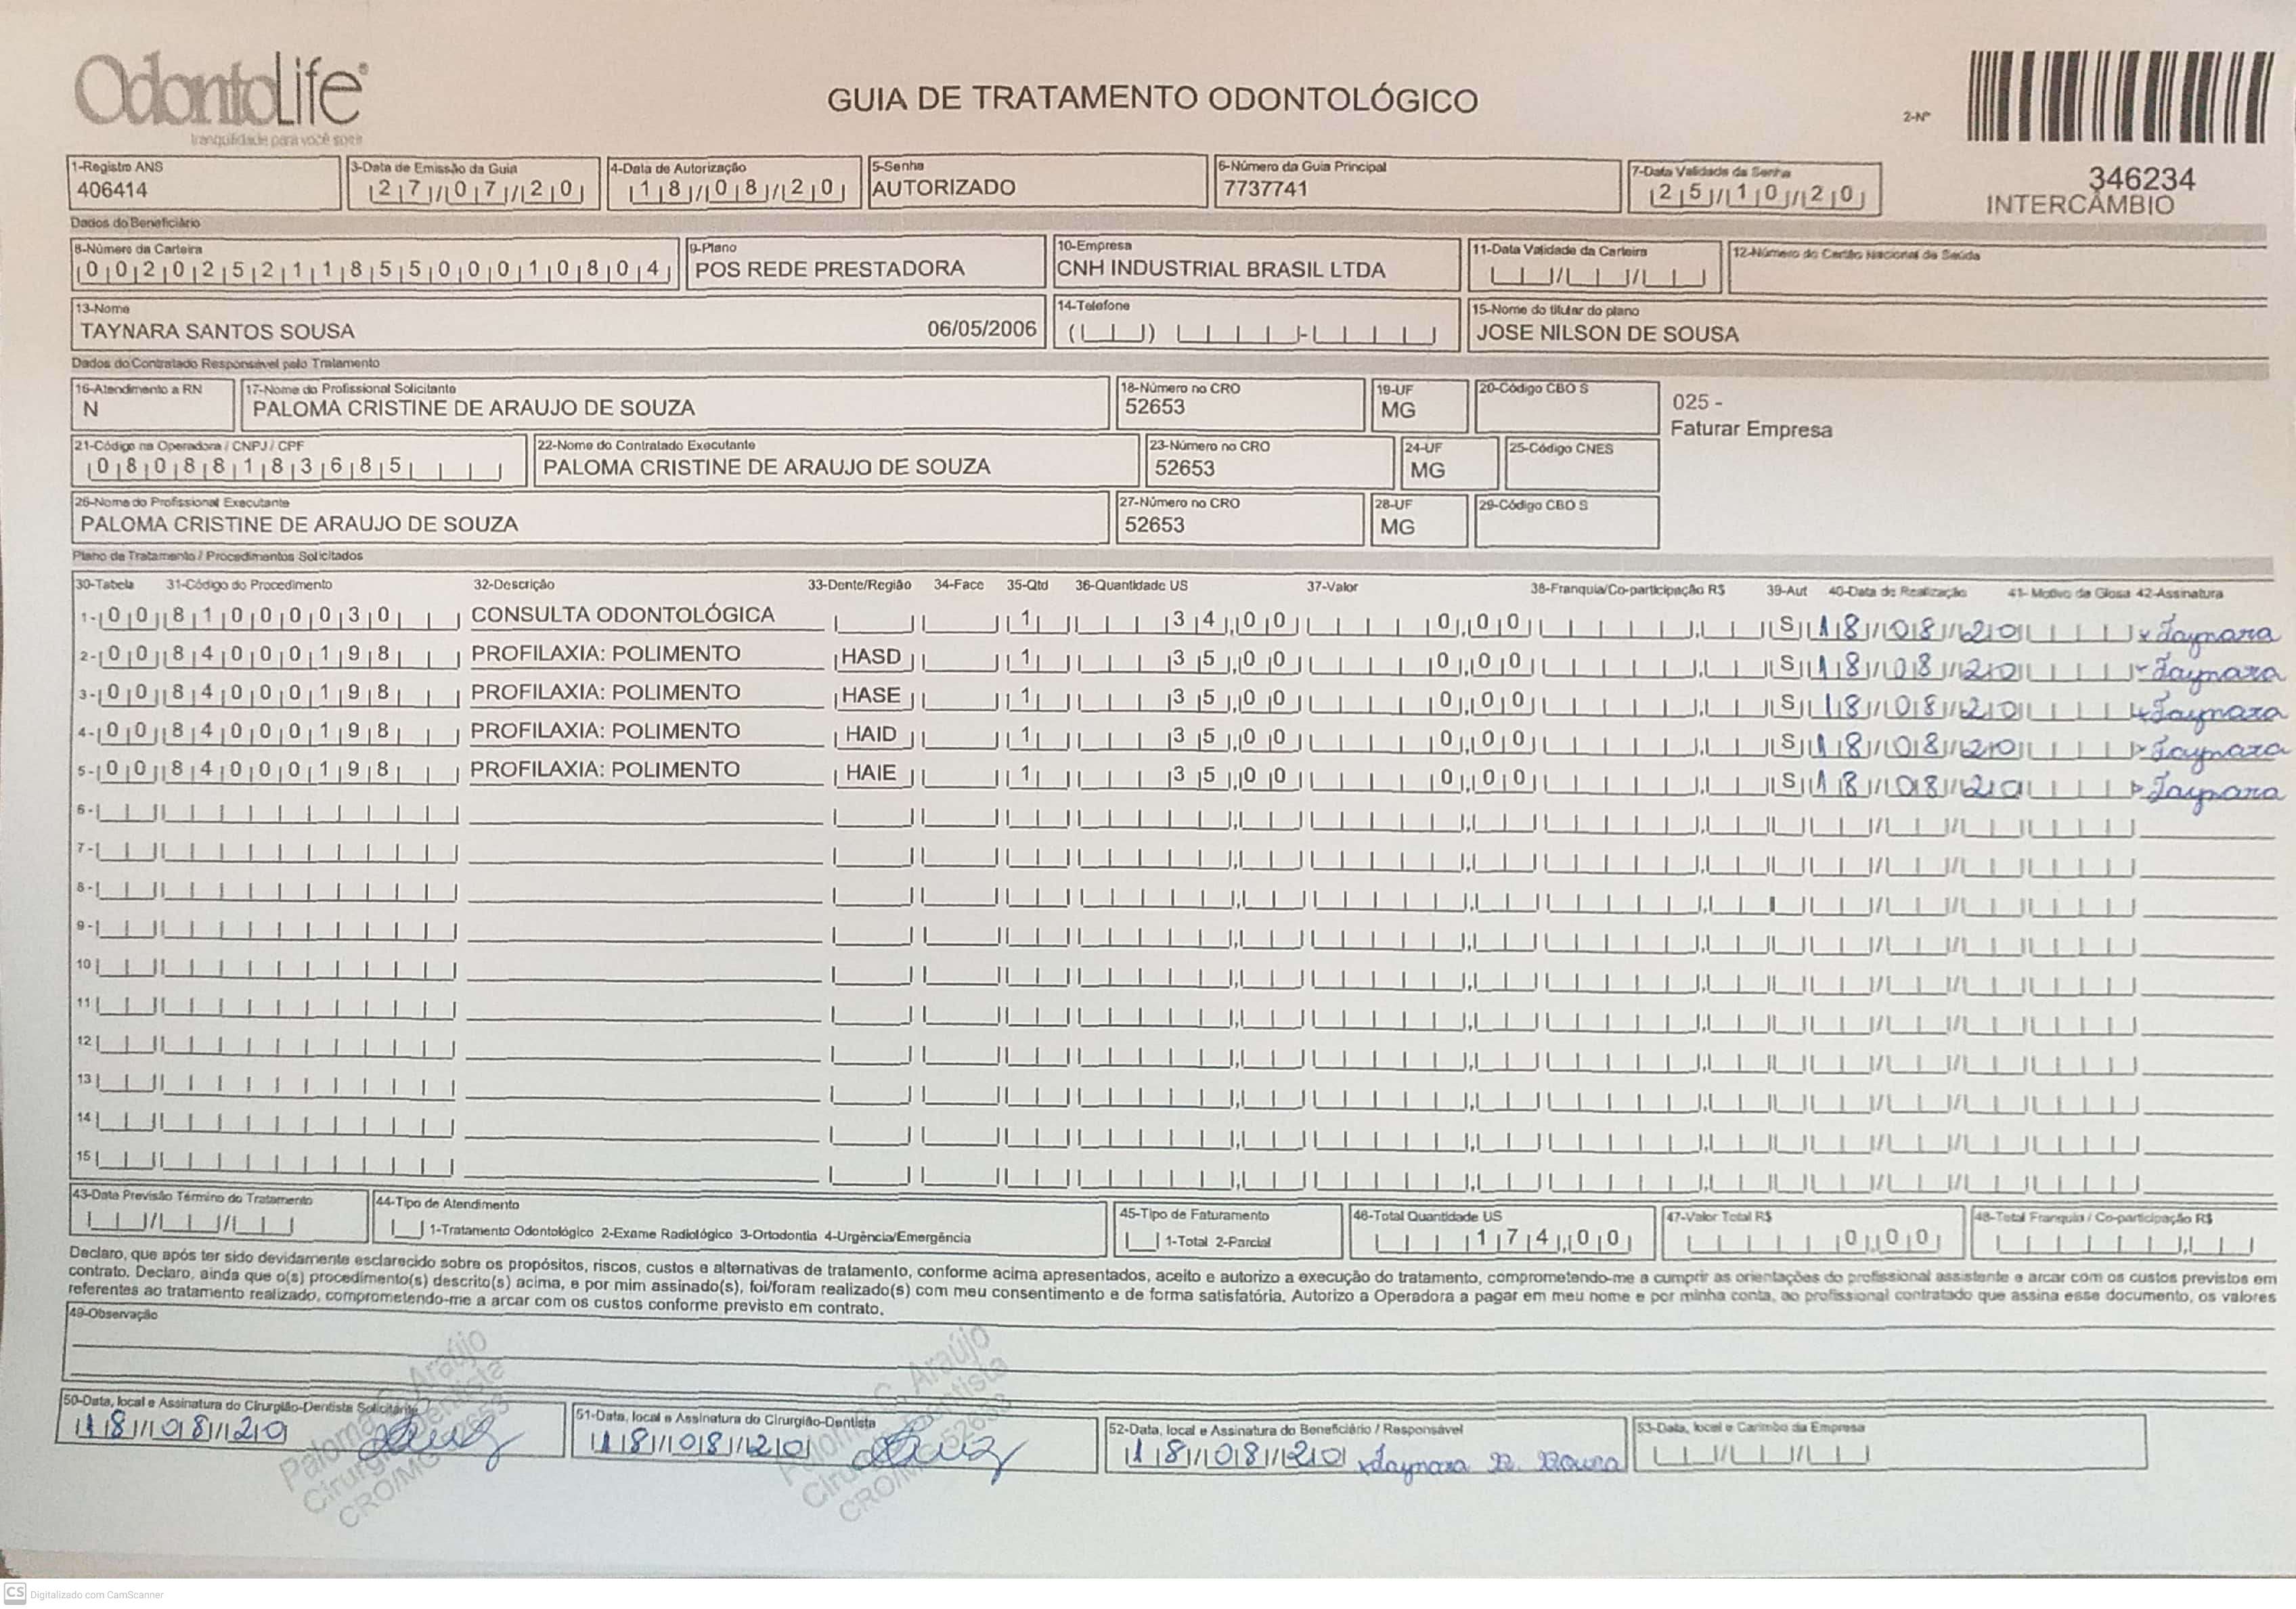 OdontoLife®
tranquilidade para você sorrir
GUIA DE TRATAMENTO ODONTOLÓGICO
2-Nº
346234
INTERCÂMBIO
1-Registro ANS
406414
3-Data de Emissão da Guia
27/07/20
4-Data de Autorização
18/08/20
5-Senha
AUTORIZADO
6-Número da Guia Principal
7737741
7-Data Validade da Senha
25/10/20
Dados do Beneficiário
8-Número da Carteira
00202521185500010804
9-Plano
POS REDE PRESTADORA
10-Empresa
CNH INDUSTRIAL BRASIL LTDA
11-Data Validade da Carteira
12-Número do Cartão Nacional de Saúde
13-Nome
TAYNARA SANTOS SOUSA 06/05/2006
14-Telefone
15-Nome do titular do plano
JOSE NILSON DE SOUSA
Dados do Contratado Responsável pelo Tratamento
16-Atendimento a RN
N
17-Nome do Profissional Solicitante
PALOMA CRISTINE DE ARAUJO DE SOUZA
18-Número no CRO
52653
19-UF
MG
20-Código CBO S
025 -
Faturar Empresa
21-Código na Operadora / CNPJ / CPF
08088183685
22-Nome do Contratado Executante
PALOMA CRISTINE DE ARAUJO DE SOUZA
23-Número no CRO
52653
24-UF
MG
25-Código CNES
26-Nome do Profissional Executante
PALOMA CRISTINE DE ARAUJO DE SOUZA
27-Número no CRO
52653
28-UF
MG
29-Código CBO S
Plano de Tratamento / Procedimentos Solicitados
30-Tabela 31-Código do Procedimento 32-Descrição 33-Dente/Região 34-Face 35-Qtd 36-Quantidade US 37-Valor 38-Franquia/Co-participação R$ 39-Aut 40-Data de Realização 41- Motivo da Glosa 42-Assinatura
1- 00 81000030 CONSULTA ODONTOLÓGICA 1 34,00 0,00 S 18/08/20 x Taynara
2- 00 84000198 PROFILAXIA: POLIMENTO HASD 1 35,00 0,00 S 18/08/20 x Taynara
3- 00 84000198 PROFILAXIA: POLIMENTO HASE 1 35,00 0,00 S 18/08/20 x Taynara
4- 00 84000198 PROFILAXIA: POLIMENTO HAID 1 35,00 0,00 S 18/08/20 x Taynara
5- 00 84000198 PROFILAXIA: POLIMENTO HAIE 1 35,00 0,00 S 18/08/20 x Taynara
6-
7-
8-
9-
10
11
12
13
14
15
43-Data Previsão Término do Tratamento
44-Tipo de Atendimento
1-Tratamento Odontológico 2-Exame Radiológico 3-Ortodontia 4-Urgência/Emergência
45-Tipo de Faturamento
1-Total 2-Parcial
46-Total Quantidade US
174,00
47-Valor Total R$
0,00
48-Total Franquia / Co-participação R$
Declaro, que após ter sido devidamente esclarecido sobre os propósitos, riscos, custos e alternativas de tratamento, conforme acima apresentados, aceito e autorizo a execução do tratamento, comprometendo-me a cumprir as orientações do profissional assistente e arcar com os custos previstos em
contrato. Declaro, ainda que o(s) procedimento(s) descrito(s) acima, e por mim assinado(s), foi/foram realizado(s) com meu consentimento e de forma satisfatória. Autorizo a Operadora a pagar em meu nome e por minha conta, ao profissional contratado que assina esse documento, os valores
referentes ao tratamento realizado, comprometendo-me a arcar com os custos conforme previsto em contrato.
49-Observação
50-Data, local e Assinatura do Cirurgião-Dentista Solicitante
18/08/20
Paloma C. Araújo
Cirurgiã Dentista
CRO/MG 52653
51-Data, local e Assinatura do Cirurgião-Dentista
18/08/20
Paloma C. Araújo
Cirurgiã Dentista
CRO/MG 52653
52-Data, local e Assinatura do Beneficiário / Responsável
18/08/20 x Taynara
53-Data, local e Carimbo da Empresa
CS Digitalizado com CamScanner